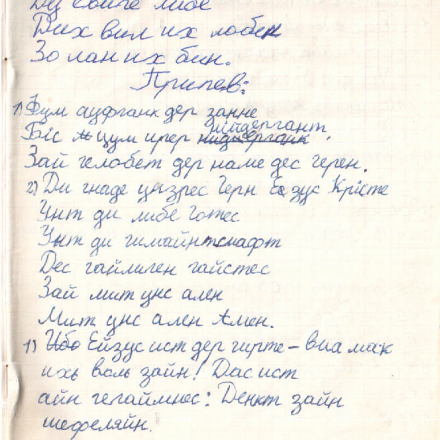 Ду ... либе
Дих вил их лобен
Зо лан их бин.
Припев:
1) Фум ауфганк дер занне
нидергант.
Біс цум ирер
Зай гелобет дер наме дес герен.
2) Ди гнаде унзрес Герн Езус Крісте
Унт ди либе Готес
Унт ди гимайнтснафт
Дес гайлиген гайстес
Зай мит унс ален
Мит унс ален Амен.
1) Ибо Ейзус ист дер гирте – виа мак
ихь воль зайн! Дас ист
айн гегаймнес: Денкт зайн
шефеляйн.